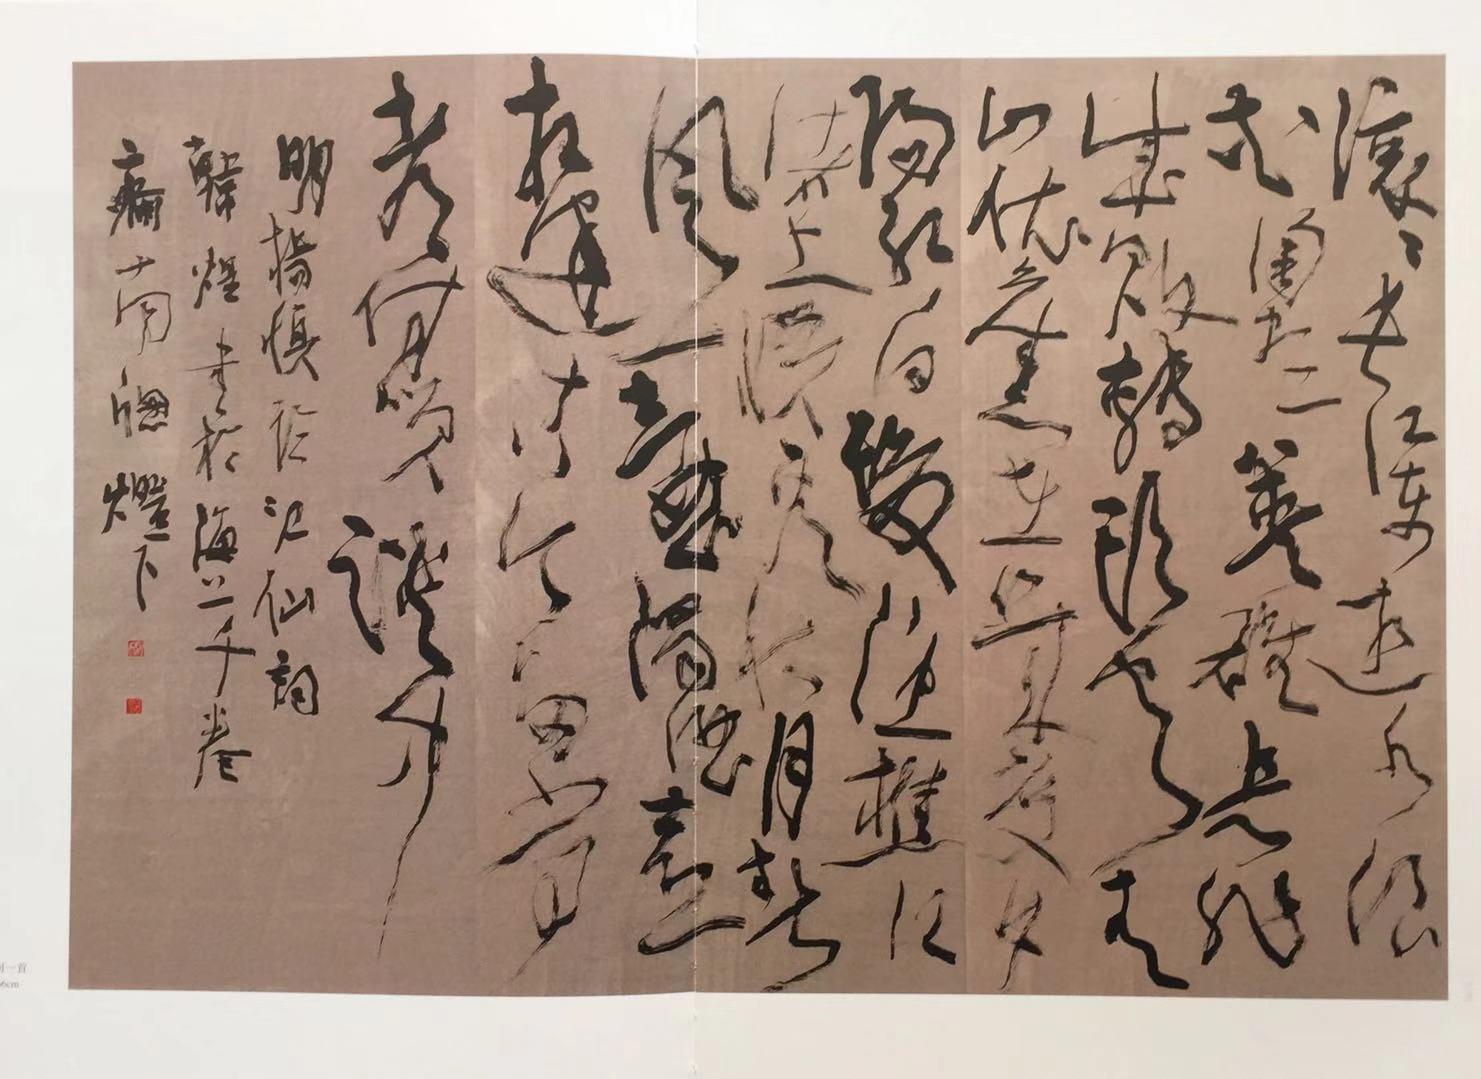 滚滚长江东逝水浪
花淘尽英雄是非
成败转头空青
山依旧在几度夕
阳红白发渔樵江
渚上惯看秋月春
风一壶浊酒喜
相逢古今多少事
都付笑谈中
明楊慎临江仙詞
韓煜书於海上千卷
斋南牖燈下
一首
6cm